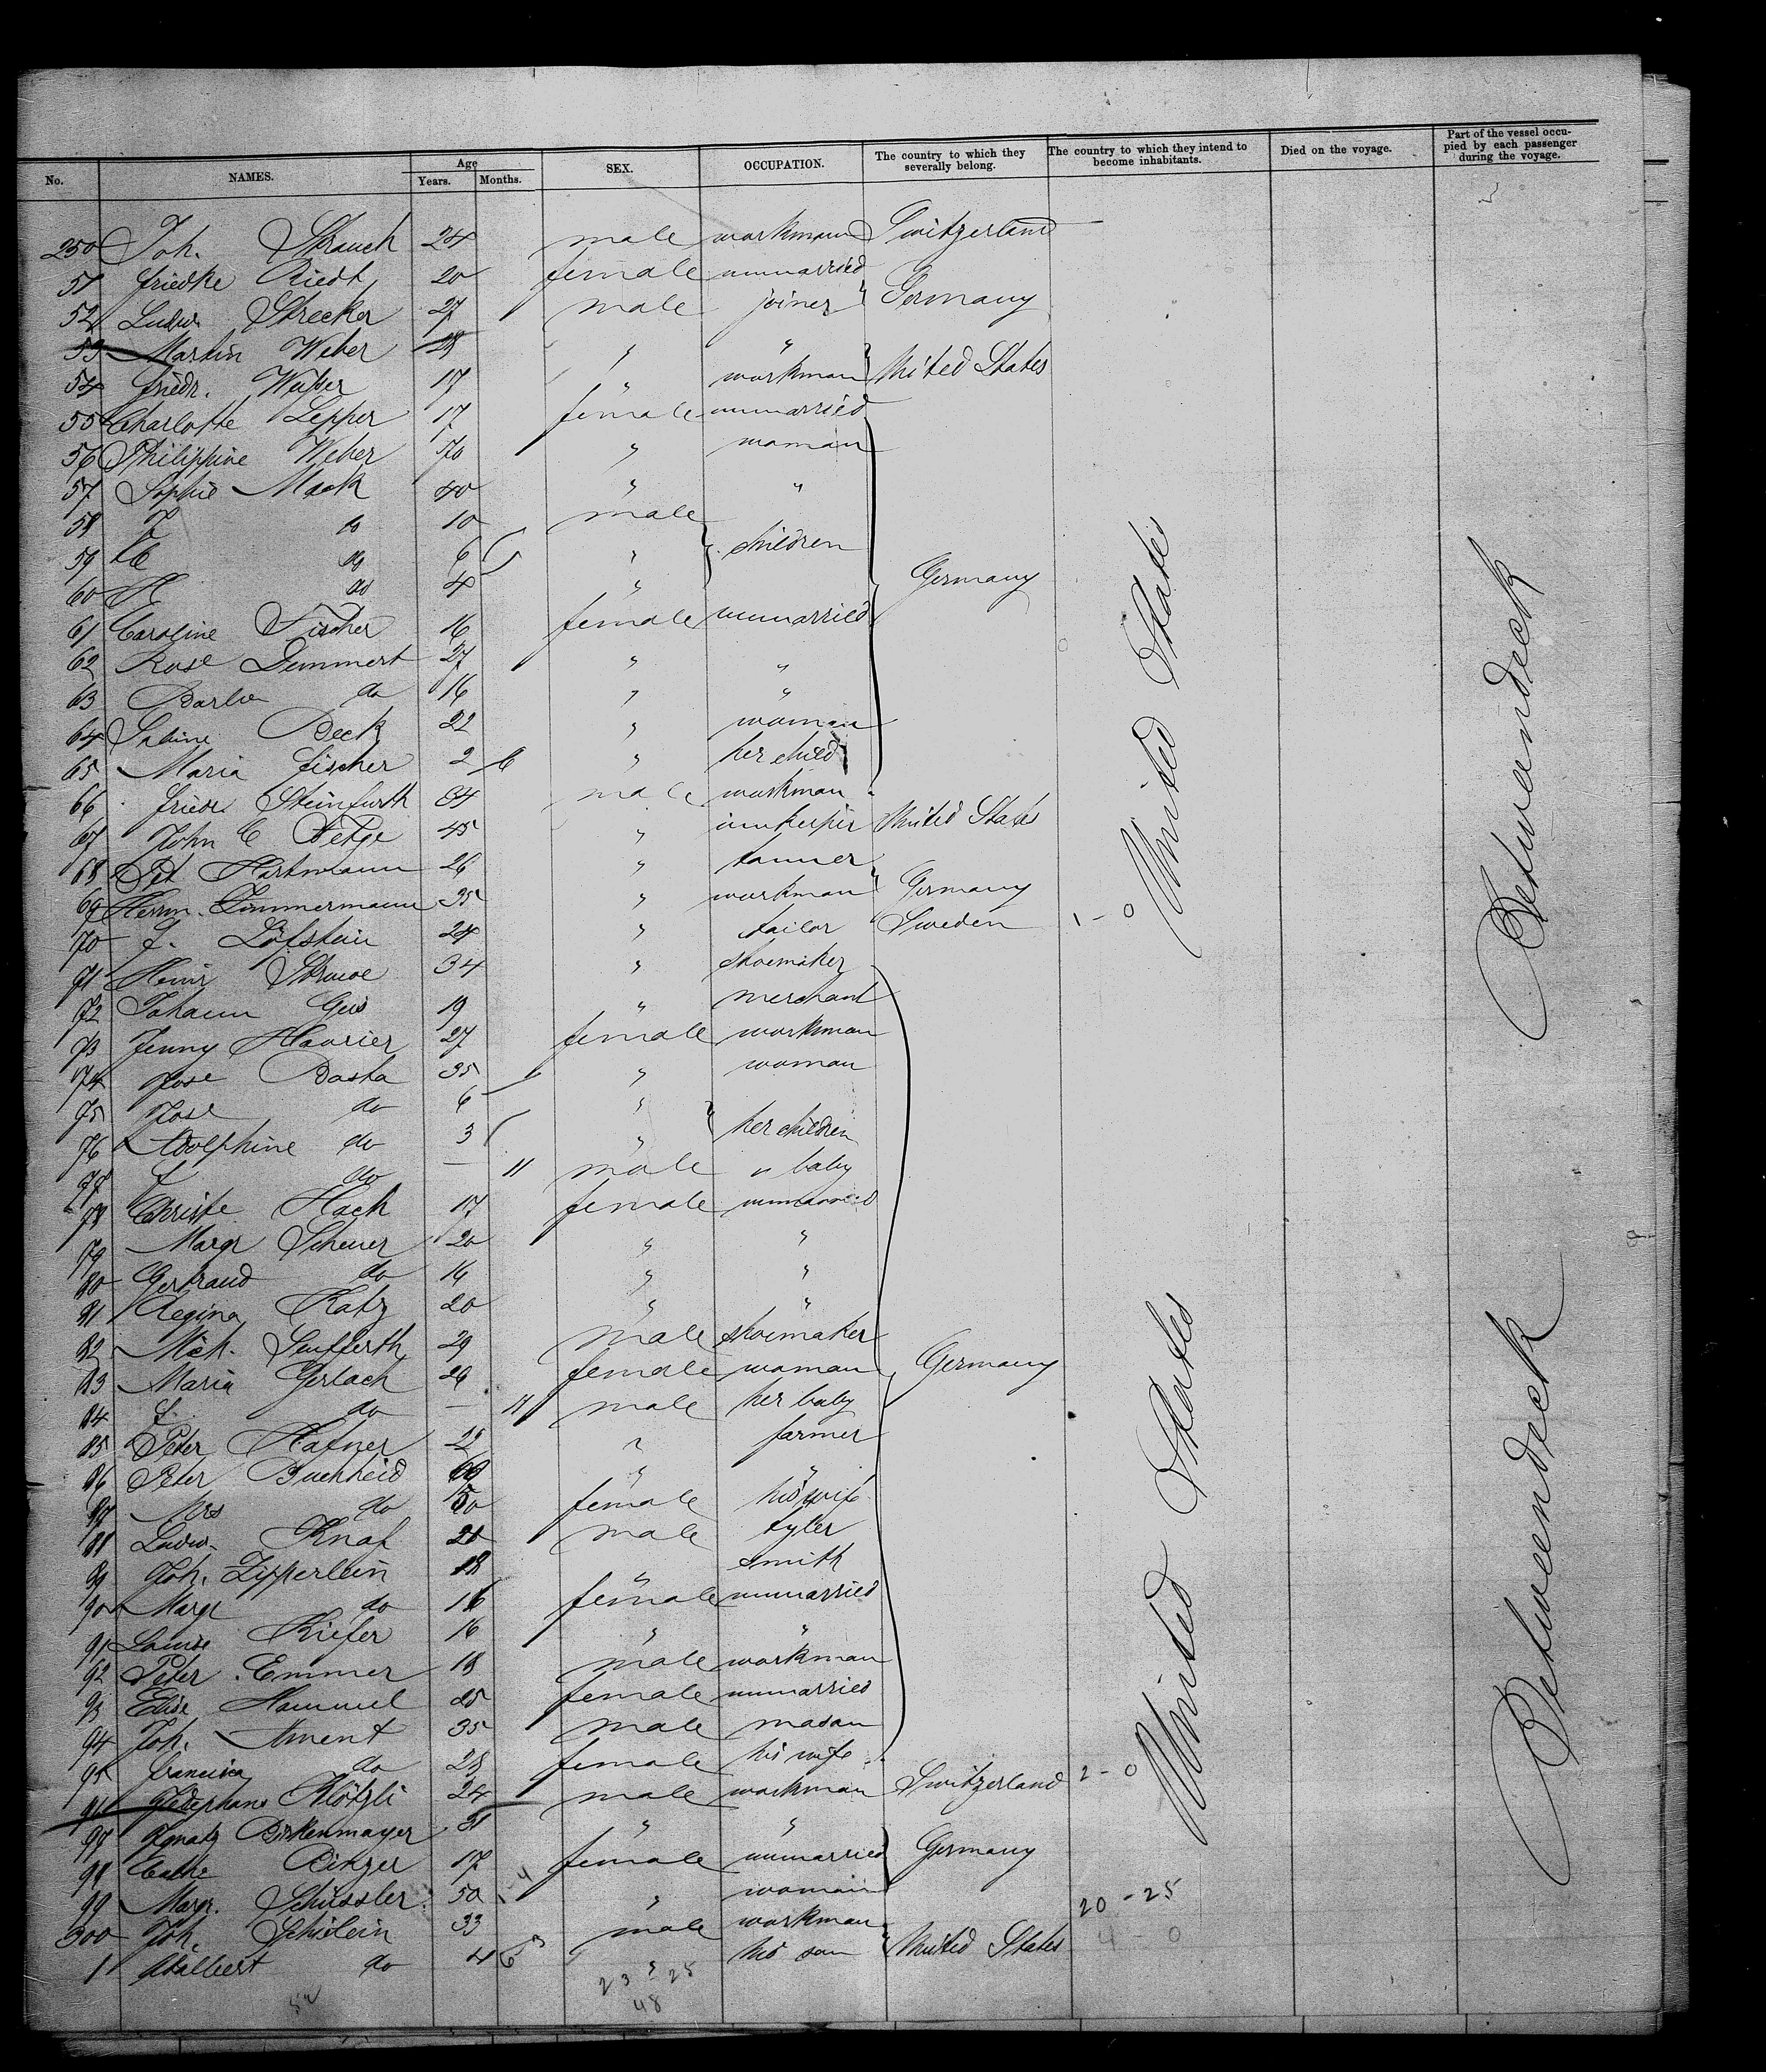 No. NAMES. Age Years. Months. SEX. OCCUPATION. The country to which they severally belong. The country to which they intend to become inhabitants. Died on the voyage. Part of the vessel occupied by each passenger during the voyage.
250 Joh. Strauch 24 male workman Switzerland
51 Friedke Riedt 20 female unmarried
52 Ludw. Strecker 27 male joiner Germany
53 Martin Weber 28 " "
54 Friedr. Weber 17 " workman United States
55 Charlotte Lepper 17 female unmarried
56 Philippine Weber 70 " woman
57 Sophie Mack 40 " "
58 do 10 male
59 do 6 " children
60 do 4 " Germany
61 Caroline Fischer 16 female unmarried
62 Rose Demmert 27 " "
63 Barba do 16 " "
64 Sabine Beck 22 " woman
65 Maria Fischer 2 6 " her child
66 Friedr. Steinfurth 34 male workman
67 John C 45 " innkeeper United States
68 Pet Hartmann 26 " tanner
69 Herm. Zimmermann 35 " workman Germany
70 Löfstein 24 " tailor Sweden 1-0
71 Heinr Struve 34 " shoemaker
72 Johann 19 " merchant
73 Jenny 27 female workman
74 Rose Basha 35 " woman
75 Rose do 6 "
76 Adolphine do 3 " her children
77 do — 11 male " baby
78 Christe Hack 17 female unmarried
79 Margr Scheuer 20 " "
80 Gertraud do 16 " "
81 Regina Katz 20 " "
82 Mich. Seufferth 29 male shoemaker
83 Maria Gerlach 26 female woman Germany
84 do — 11 male her baby
85 Peter Hafner 22 " farmer
86 Peter Buchheid 60 " "
87 Mrs do 50 female his wife
88 Ludw. Knaf 20 male tyler
89 Joh. Zipperlein 18 " smith
90 Margr do 16 female unmarried
91 Louise Kiefer 16 " "
92 Peter Emmer 18 male workman
93 Elise Hammel 25 female unmarried
94 Joh. Ament 35 male mason
95 Francisca do 28 female his wife
96 Stephane Klötzli 24 male workman Switzerland 2-0
97 Ignatz Birkenmayer " "
98 Cathe Binzer 17 female unmarried Germany
99 Margr. Schüssler 50 " woman 20-25
300 Joh. Schislein 33 male workman 4-0
1 Adalbert do 4 6 " his son United States
23 25
48
United States
United States
Betweendeck
Betweendeck